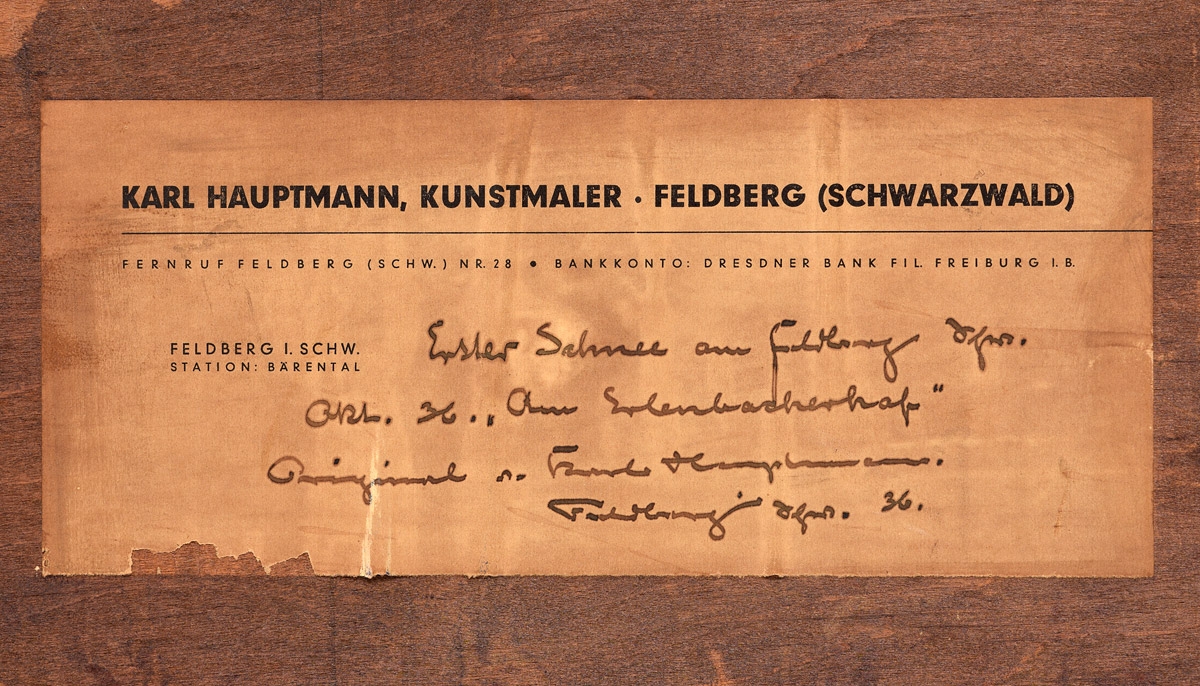 KARL HAUPTMANN, KUNSTMALER · FELDBERG (SCHWARZWALD)
FERNRUF FELDBERG (SCHW.) NR. 28 • BANKKONTO: DRESDNER BANK FIL. FREIBURG I. B.
FELDBERG I. SCHW.
STATION: BÄRENTAL
Erster Schnee am Feldberg Schw.
Okt. 36. „Am Erlenbacherhof"
Original v. Karl Hauptmann.
Feldberg Schw. 36.